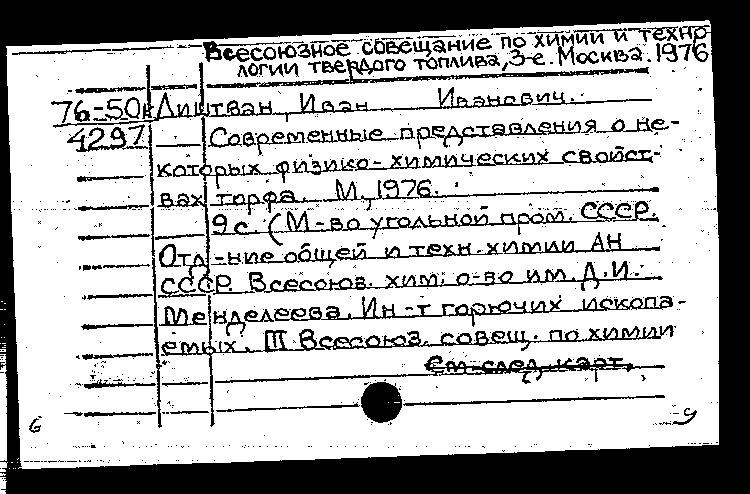 Всесоюзное совещание по химии и техно
логии твердого топлива, 3-е. Москва. 1976
76-50к Лиштван, Иван Иванович.
4297 Современные представления о не-
которых физико-химических свойст-
вах торфа. М., 1976.
9 с. (М-во угольной пром. СССР.
Отд-ние общей и техн. химии АН
СССР. Всесоюз. хим. о-во им. Д.И.
Менделеева. Ин-т горючих ископа-
емых. III Всесоюз. совещ. по химии
См. след. карт.
б 9